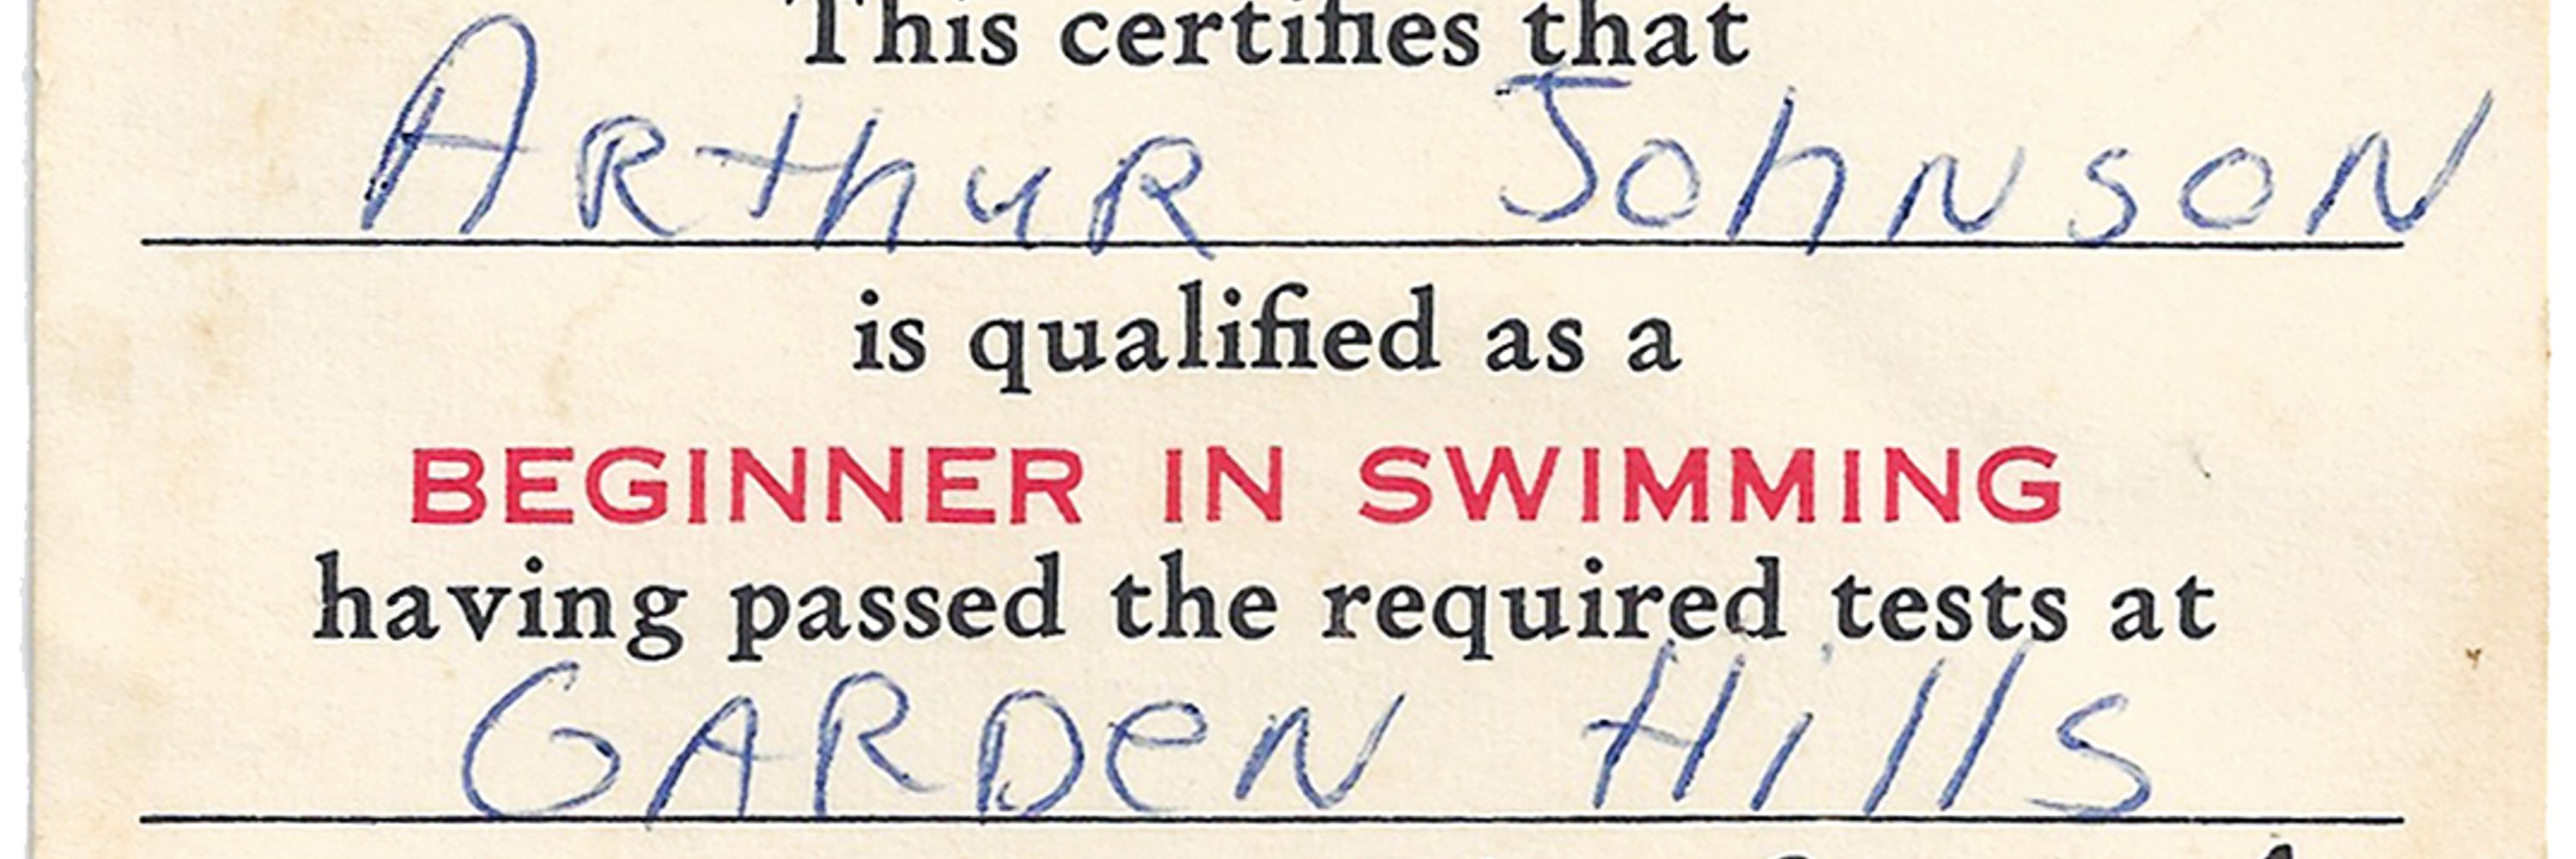 This certifies that
Arthur Johnson
is qualified as a
BEGINNER IN SWIMMING
having passed the required tests at
GARDEN Hills